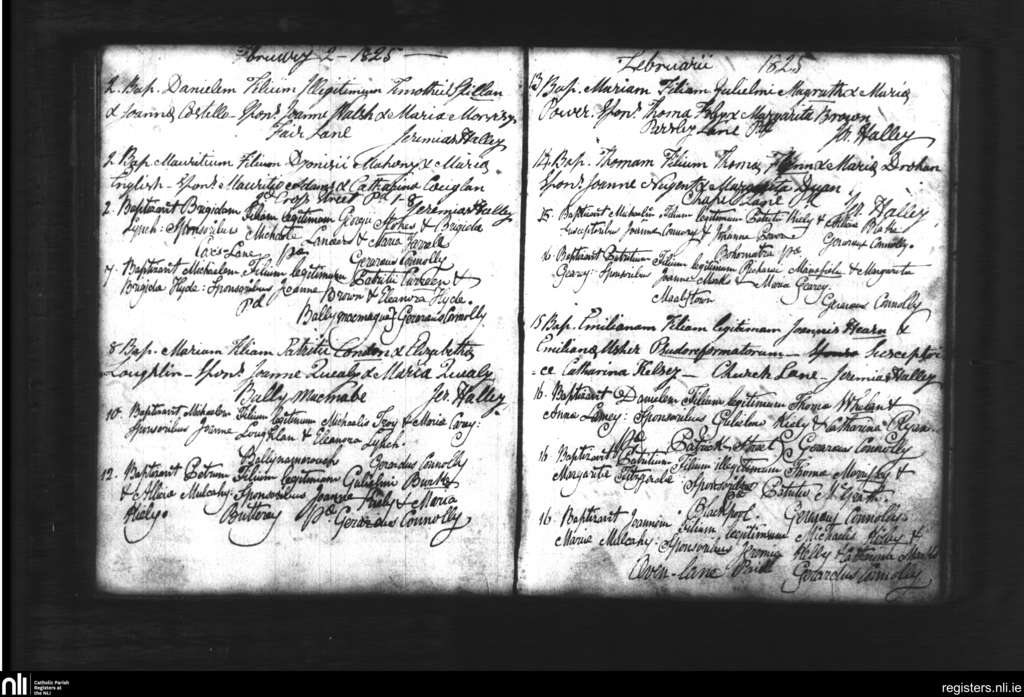 February 2 - 1825
2. Bap. Danielem Filium Illegitimum Timothei Spillan
& Joanna Costello - Spons. Joanne Walsh & Maria Morrissy
Fair Lane Jeremias Halley
2. Bap. Mauritium Filium Dionisii Mahony & Maria
English - Spons. Mauritio Adams & Catharina Coughlan
Cross Street Pd 1-8 Jeremias Halley
2. Baptizavit Brigidam Filiam legitimam Georgii Stokes & Brigida
Lynch: Sponsoribus Michaele Landers & Maria Farrell
Cox's Lane pd Gerardus Connolly
7. Baptizavit Michaelem Filium legitimum Patritii Curreen &
Brigida Hyde: Sponsoribus Joanne Brown & Eleanora Hyde.
Pd Gerardus Connolly
8 Bap. Mariam Filiam Patritii London & Elizabetha
Loughlin - Spons. Joanne Quealy & Maria Quealy
Ballymacmabe Jer. Halley
10. Baptizavit Michaelem Filium legitimum Michaelis Troy & Maria Carey:
Sponsoribus Joanne Loughlan & Eleanora Lynch.
Gerardus Connolly
12. Baptizavit Petrum Filium legitimum Gulielmi Burke
& Alicia Mulcahy: Sponsoribus Joanne Kiely & Maria
Kiely. Buttery Pd Gerardus Connolly
Februarii 1825
13 Bap. Mariam Filiam Gulielmi Magrath & Maria
Power. Spons. Thoma Foley & Margarita Brown
Lane Pd Jer. Halley
14. Bap. Thomam Filium Thoma Flynn & Maria Drohan
Spons. Joanne Nugent & Margarita Dugan
Chapel Lane Pd Jer. Halley
15. Baptizavit Michaelem Filium legitimum Patritii Kiely &
Susceptoribus Joanne Connory & Johanna Bowne
pd Gerardus Connolly.
16. Baptizavit Patritium Filium legitimum Richardi & Margarita
Geary: Sponsoribus Joanne Meade & Maria Geary.
Gerardus Connolly
15 Bap. Emilianam Filiam legitimam Joannis Hearn &
Emiliana Usher Pseudoreformatorum - Spons Susceptri
-ce Catharina Kelsey - Church Lane Jeremias Halley
16. Baptizavit Danielem Filium legitimum Thoma Whelan &
Anna Laney: Sponsoribus Gulielmo Kiely & Catharina Ryan
Pd Patrick Street Gerardus Connolly
16 Baptizavit Patritium Filium illegitimum Thoma Morrissy &
Margarita Fitzgerald: Sponsoribus Patritio McGrath
Pd Blackpool. Gerardus Connolly.
16. Baptizavit Joannem Filium legitimum Michaelis Kelly &
Maria Mulcahy: Sponsoribus Jeremia Kelly & Catharina
Oven-lane Paid Gerardus Connolly
nli Catholic Parish
Registers at
the NLI
registers.nli.ie